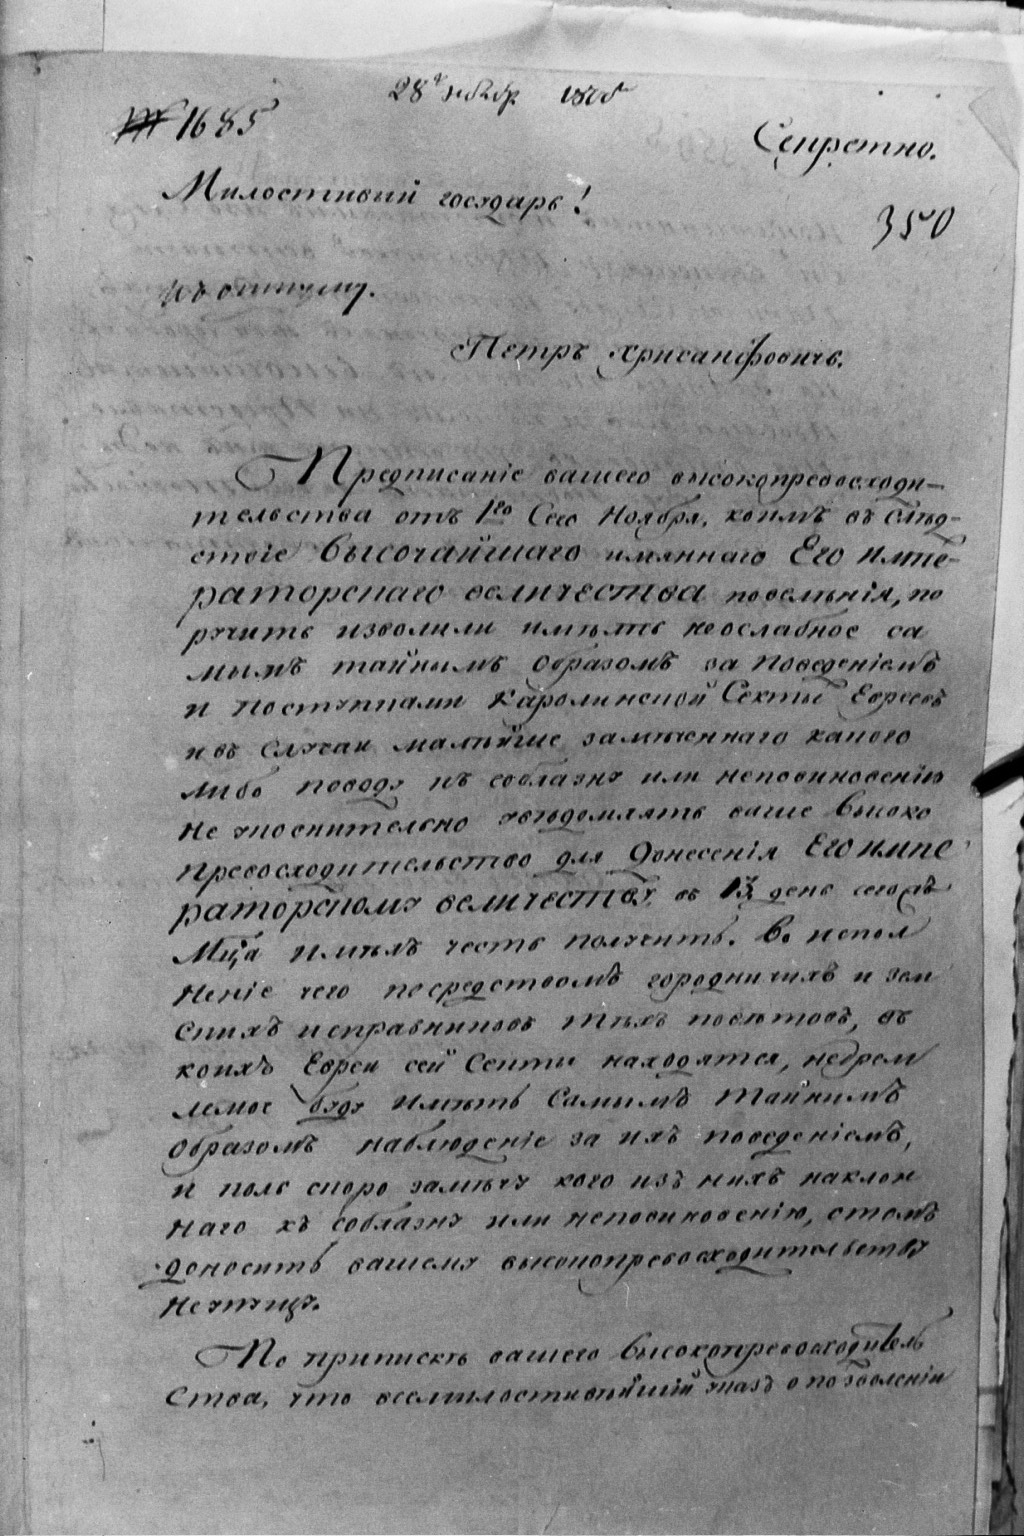 28г нбр 1800
№ 1685
Секретно.
Милостивый государь!
350
Петръ Хрисанфовичь.
Предписаніе вашего высокопревосходи-
тельства отъ 1го Сего Ноября, коимъ въ слѣд-
ствіе Высочайшаго имяннаго Его импе-
раторскаго величества повелѣнія, по
ручить изволили имѣть неослабное са
мымъ тайнымъ образомъ за поведеніемъ
и поступками Каролинской Секты Евреевъ
и въ случаи малѣйше замѣченнаго какого
либо поводу къ соблазну или неповиновенію
не упоснительно увѣдомлять ваше высоко
превосходительство для донесенія Его импе
раторскому величеству, въ 13 день сегожъ
Мц҃а имѣлъ честь получить. Во испол
неніе чего посредствомъ городничихъ и зем
скихъ исправниковъ тѣхъ повѣтовъ, въ
коихъ Евреи сей Секты находятся, недрем
лемое буду имѣть Самымъ тайнимъ
образомъ наблюденіе за ихъ поведеніемъ,
и коль скоро замѣчу кого изъ нихъ наклон
наго къ соблазну или неповиновенію, о томъ
доносить вашему высокопревосходительству
не упущу.
По припискѣ вашего высокопревосходитель
Ства, что всемилостивѣйшій указъ о позволеніи